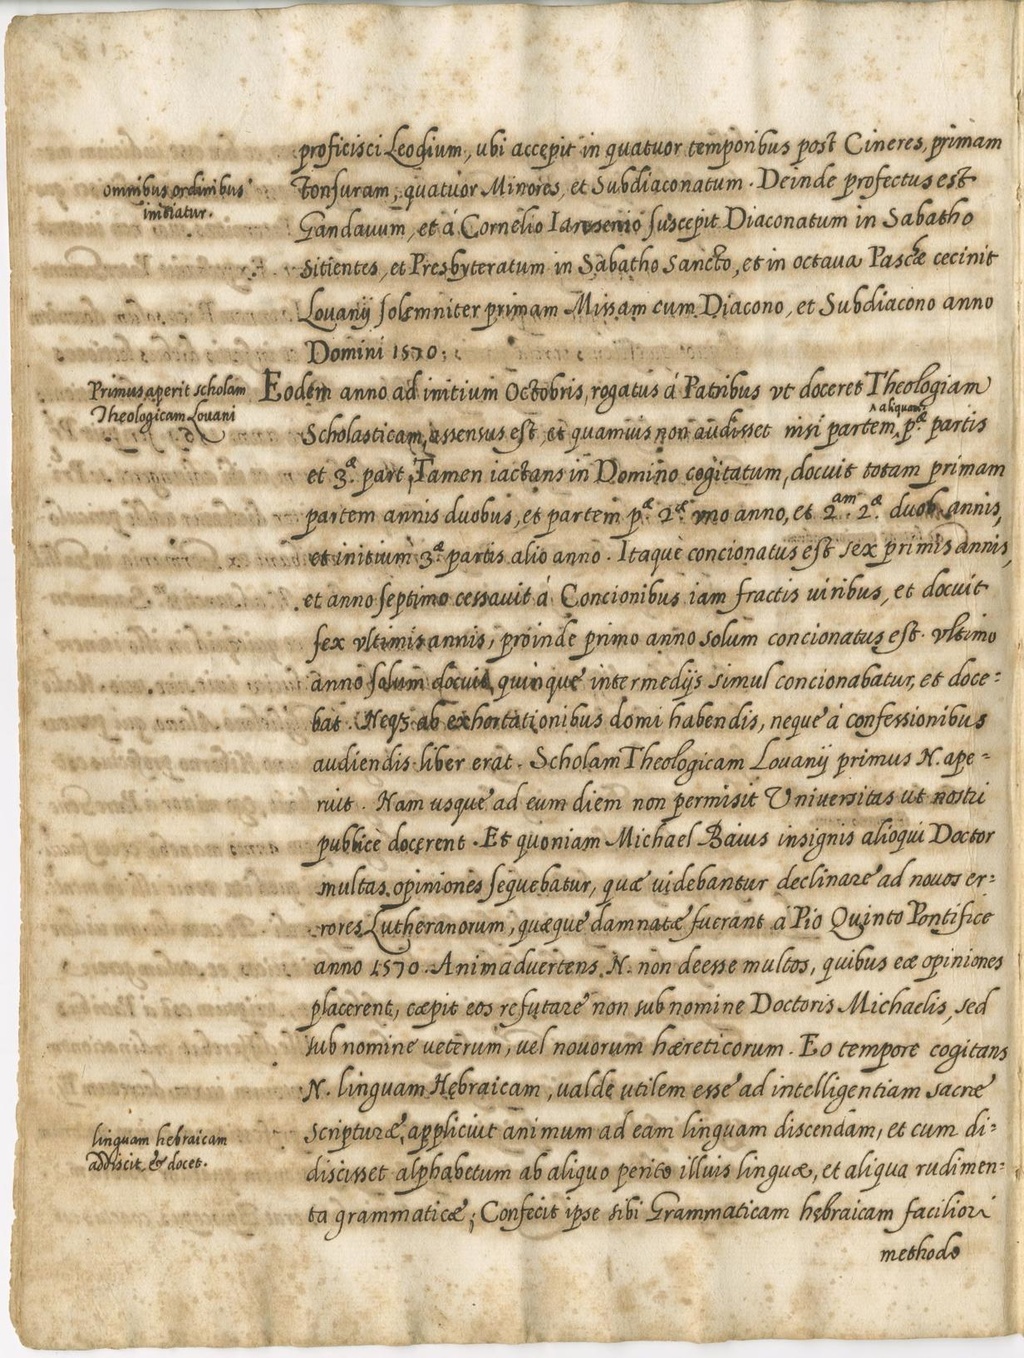 proficisci Leodium, ubi accepit in quatuor temporibus post Cineres, primam
omnibus ordinibus
initiatur.
tonsuram, quatuor Minores, et Subdiaconatum. Deinde profectus est
Gandauum, et á Cornelio Iansenio suscepit Diaconatum in Sabatho
Sitientes, et Presbyteratum in Sabatho Sancto, et in octaua Paschæ cecinit
Louanij solemniter primam Missam cum Diacono, et Subdiacono anno
Domini 1570;
Primus aperit scholam
Theologicam Louani
Eodem anno ad initium Octobris, rogatus á Patribus vt doceret Theologiam
Scholasticam, assensus est, et quamuis non audisset nisi partem, aliquam pæ. partis
et 3.æ part, Tamen iactans in Domino cogitatum, docuit totam primam
partem annis duobus, et partem pæ. 2æ. vno anno, et 2am. 2æ. duob. annis,
et initium 3.æ partis alio anno. Itaque concionatus est sex primis annis,
et anno septimo cessauit á Concionibus iam fractis uiribus, et docuit
sex vltimis annis, proinde primo anno solum concionatus est. vltimo
anno solum docuit, quinque intermedijs simul concionabatur, et doce=
bat. Neqȝ ab exhortationibus domi habendis, neque á confessionibus
audiendis liber erat. Scholam Theologicam Louanij primus N. ape=
ruit. Nam usque ad eum diem non permisit Uniuersitas ut nostri
publicè docerent. Et quoniam Michael Baius insignis alioqui Doctor
multas opiniones sequebatur, quæ uidebantur declinare ad nouos er=
rores Lutheranorum, quæque damnatæ fuerant á Pio Quinto Pontifice
anno 1570. Animaduertens N. non deesse multos, quibus eæ opiniones
placerent, cæpit eos refutare non sub nomine Doctoris Michaelis, sed
sub nomine ueterum, uel nouorum hæreticorum. Eo tempore cogitans
N. linguam Hebraicam, ualde utilem esse ad intelligentiam sacræ
linguam hebraicam
addiscit & docet.
scripturæ, applicuit animum ad eam linguam discendam, et cum di=
discisset alphabetum ab aliquo perito illius linguæ, et aliqua rudimen=
ta grammaticæ; Confecit ipse sibi Grammaticam hebraicam faciliori
methodo